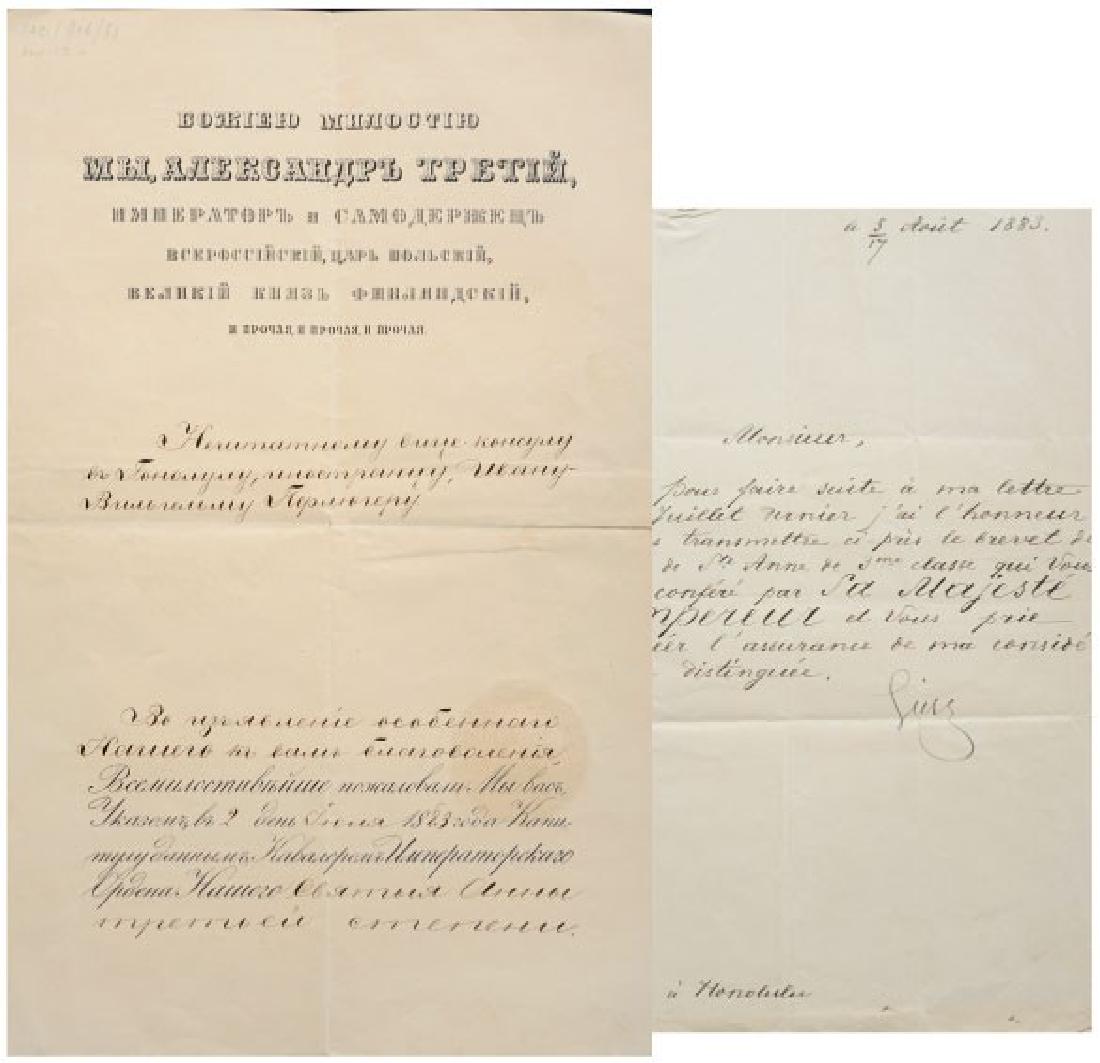 БОЖІЕЮ МИЛОСТІЮ
МЫ, АЛЕКСАНДРЪ ТРЕТІЙ,
ИМПЕРАТОРЪ и САМОДЕРЖЕЦЪ
ВСЕРОССІЙСКІЙ, ЦАРЬ ПОЛЬСКІЙ,
ВЕЛИКІЙ КНЯЗЬ ФИНЛЯНДСКІЙ,
И ПРОЧАЯ, И ПРОЧАЯ, И ПРОЧАЯ.
Нештатному вице-консулу
въ Гонолулу, иностранцу, Ивану-
Вильгельму Пермогеру
Во изъявленіе особеннаго
Нашего къ вамъ благоволенія,
Всемилостивѣйше пожаловали Мы васъ,
Указомъ, въ 2 день Іюля 1883 года Капи-
тулу даннымъ, Кавалеромъ Императорскаго
Ордена Нашего Святыя Анны
третьей степени.
a 5/17 Août 1883.
Monsieur,
pour faire suite à ma lettre
Juillet dernier j'ai l'honneur
transmettre ci près le brevet de
de Ste Anne de 3me classe qui Vous
conféré par Sa Majesté
mpereur et Vous prie
éer l'assurance de ma considé
distinguée.
Giers
à Honolulu